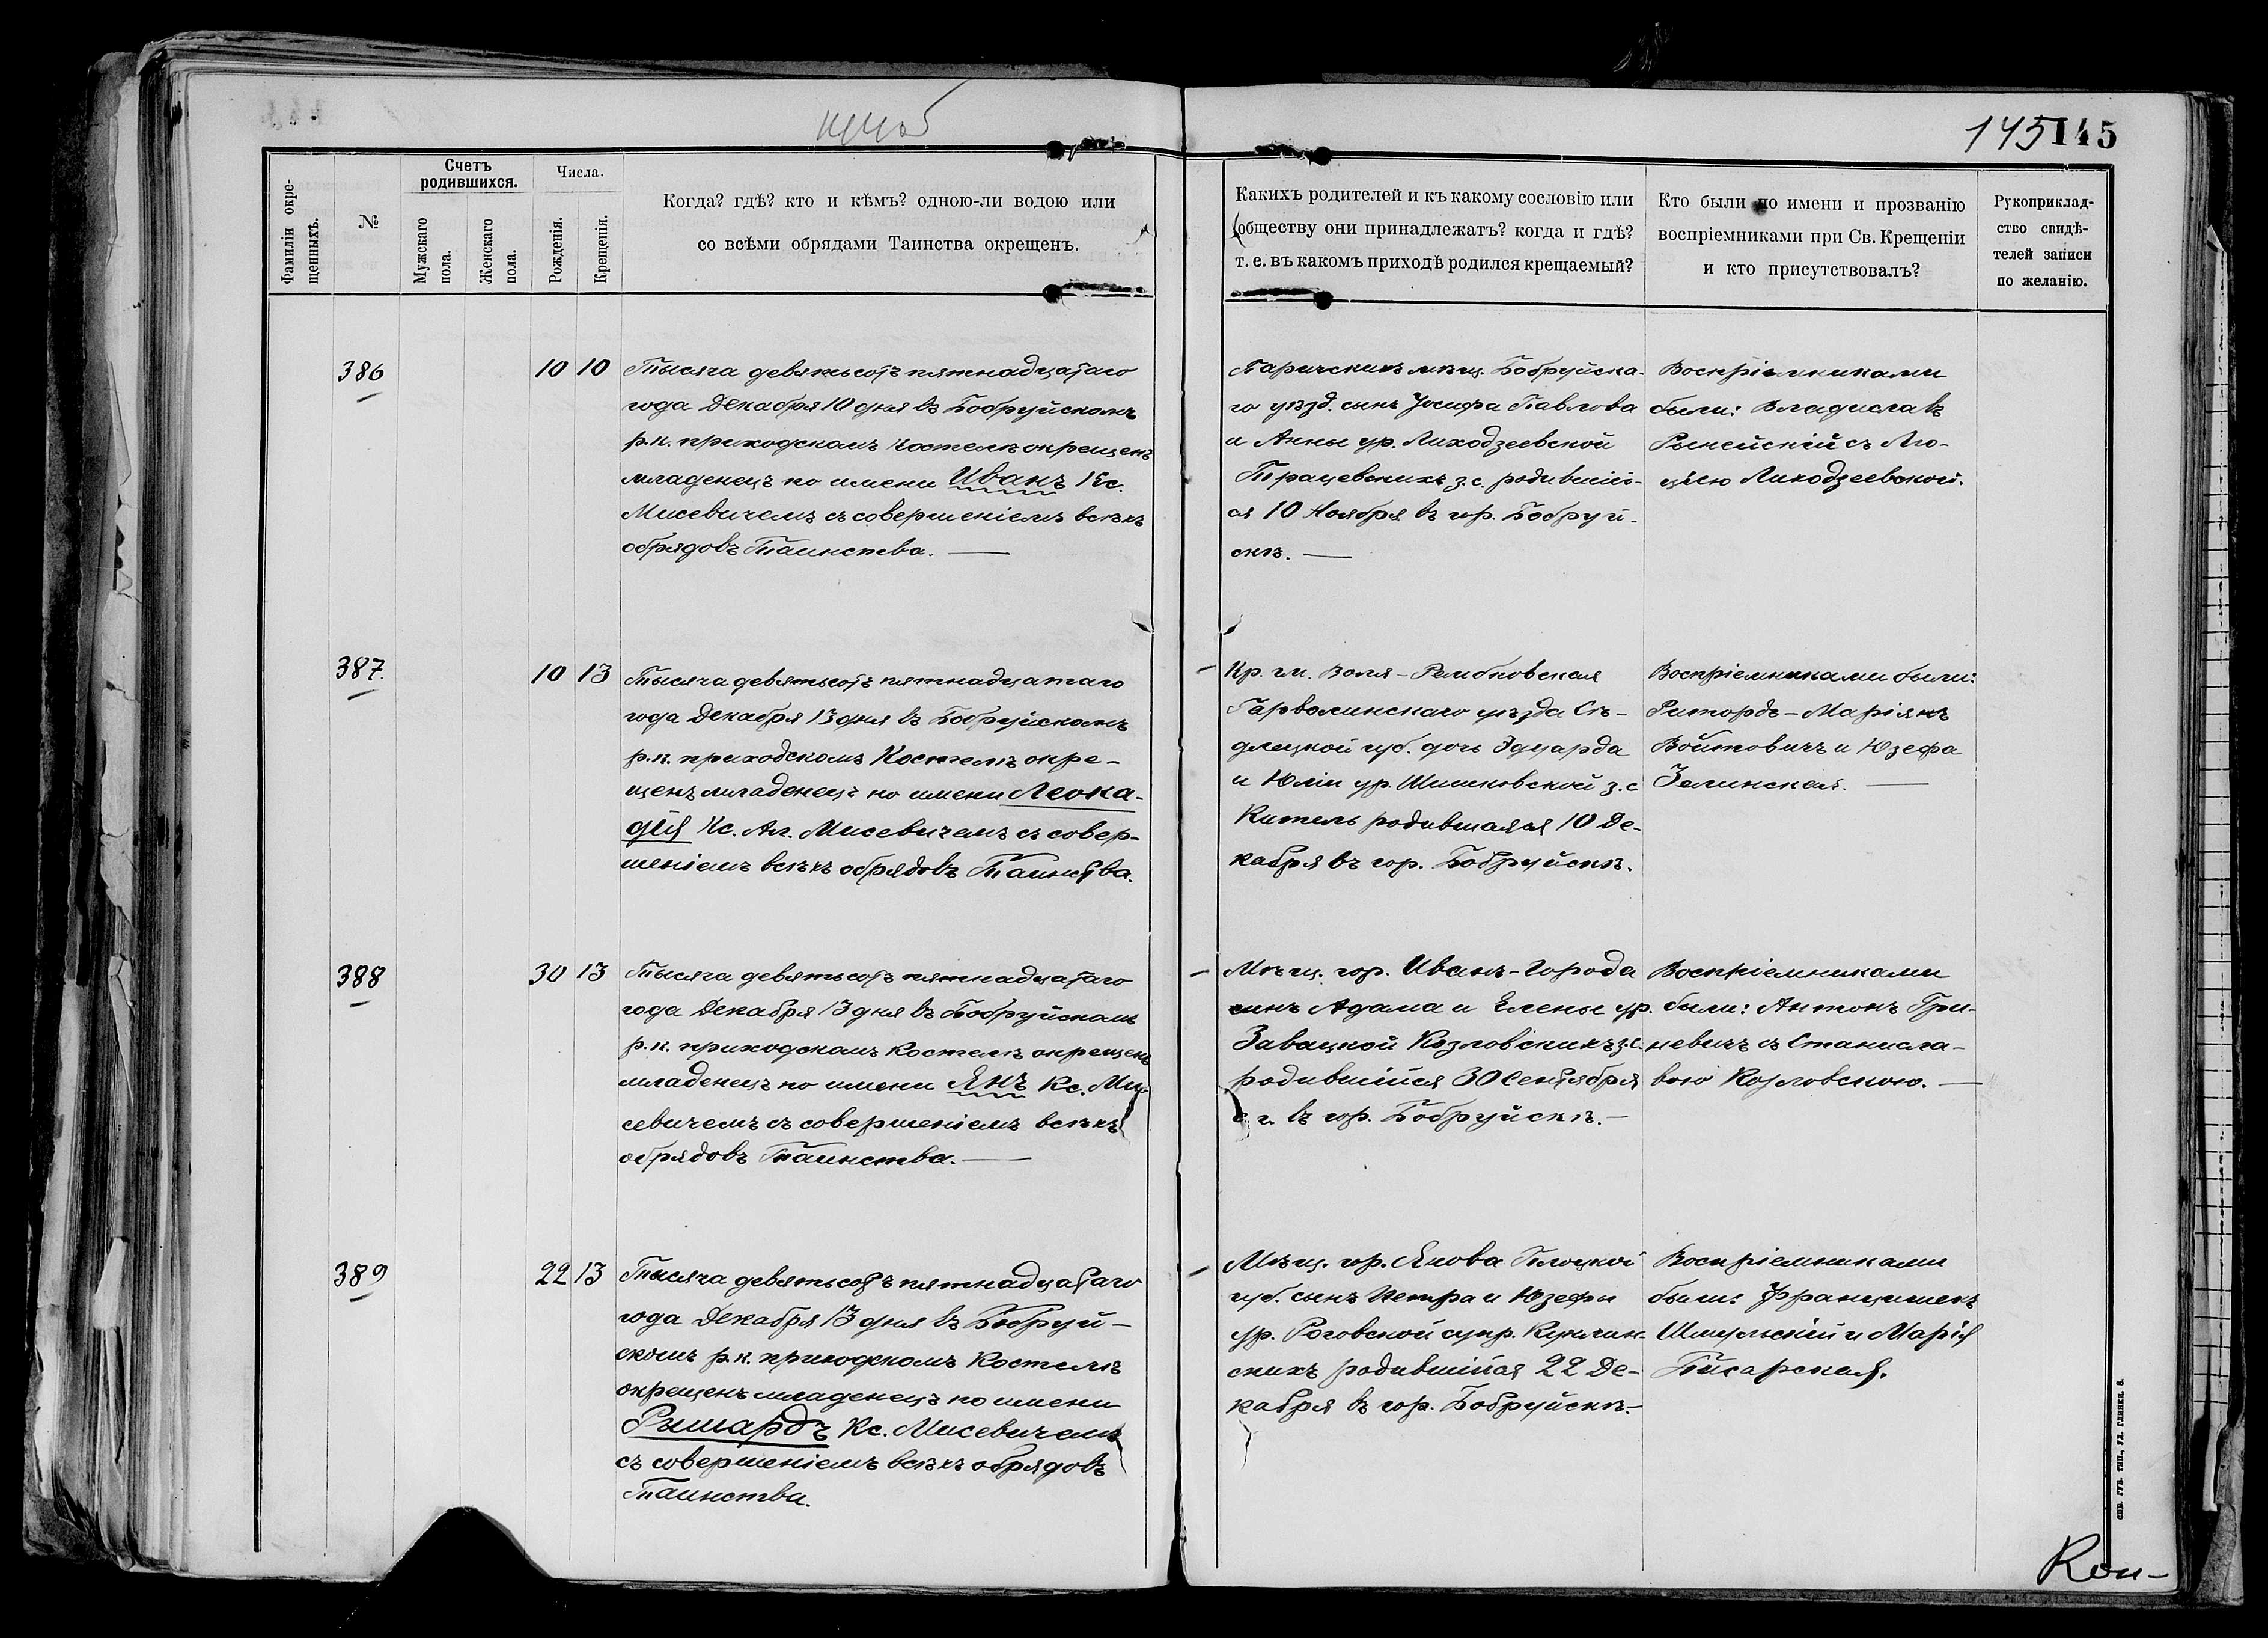 145 145
Фамиліи окре-
щенныхъ.
№
Счетъ
родившихся.
Мужскаго
пола.
Женскаго
пола.
Числа.
Рожденія.
Крещенія.
Когда? гдѣ? кто и кѣмъ? одною-ли водою или
со всѣми обрядами Таинства окрещенъ.
Какихъ родителей и къ какому сословію или
обществу они принадлежатъ? когда и гдѣ?
т. е. въ какомъ приходѣ родился крещаемый?
Кто были по имени и прозванію
воспріемниками при Св. Крещеніи
и кто присутствовалъ?
Рукоприклад-
ство свидѣ-
телей записи
по желанію.
386
10 10
Тысяча девятьсотъ пятнадцатаго
года Декабря 10 дня въ Бобруйскомъ
р.к. приходскомъ костелѣ окрещенъ
младенецъ по имени Иванъ Кс.
Мисевичемъ съ совершеніемъ всѣхъ
обрядовъ Таинства. —
Паричскихъ мѣщ. Бобруйска-
го уѣзд. сынъ Іосифа Павлова
и Анны ур. Лиходзеевской
Трацевскихъ з.с. родившій-
ся 10 Ноября въ гор. Бобруй-
скѣ. —
Воспріемниками
были: Владиславъ
Рынейскій съ Лю-
ціею Лиходзеевской.
387.
10 13
Тысяча девятьсотъ пятнадцатаго
года Декабря 13 дня въ Бобруйскомъ
р.к. приходскомъ Костелѣ окре-
щенъ младенецъ по имени Леока-
дія Кс. Ал. Мисевичемъ съ совер-
шеніемъ всѣхъ обрядовъ Таинства.
Кр. гм. Воля-Рембковская
Гарволинскаго уѣзда Сѣ-
длецкой губ. дочь Эдуарда
и Юліи ур. Шишковской з.с
Китель родившаяся 10 Де-
кабря въ гор. Бобруйскѣ.
Воспріемниками были:
Ритордъ-Маріянъ
Войтовичъ и Юзефа
Зелинская. —
388
30 13
Тысяча девятьсотъ пятнадцатаго
года Декабря 13 дня въ Бобруйскомъ
р.к. приходскомъ Костелѣ окрещенъ
младенецъ по имени Янъ Кс. Ми-
севичемъ съ совершеніемъ всѣхъ
обрядовъ Таинства. —
Мѣщ. гор. Иванъ-Города
сынъ Адама и Елены ур.
Завацкой Козловскихъ з.с.
родившійся 30 Сентября
с. г. въ гор. Бобруйскѣ. —
Воспріемниками
были: Антонъ Гри-
невичъ съ Станисла-
вою Козловскою. —
389
22 13
Тысяча девятьсотъ пятнадцатаго
года Декабря 13 дня въ Бобруй-
скомъ р.к. приходскомъ Костелѣ
окрещенъ младенецъ по имени
Рышардъ Кс. Мисевичемъ
съ совершеніемъ всѣхъ обрядовъ
Таинства.
Мѣщ. гор. Янова Плоцкой
губ. сынъ Петра и Юзефы
ур. Роговской супр. Куклин-
скихъ родившійся 22 Де-
кабря въ гор. Бобруйскѣ. —
Воспріемниками
были: Францишекъ
Шмульскій и Марія
Писарская.
СПБ. ГУБ. ТИП., УЛ. ГЛИНКИ, 8.